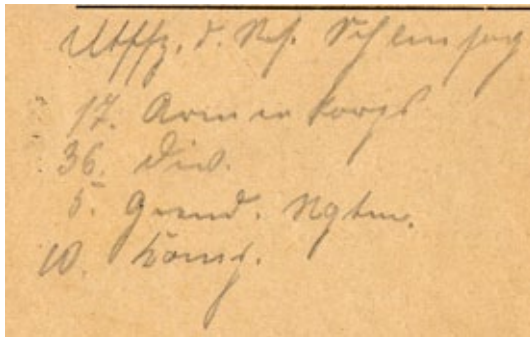 Utffz. d. Res.
17. Armeekorps
36. Div.
5. Grend. Rgtm.
10. Komp.